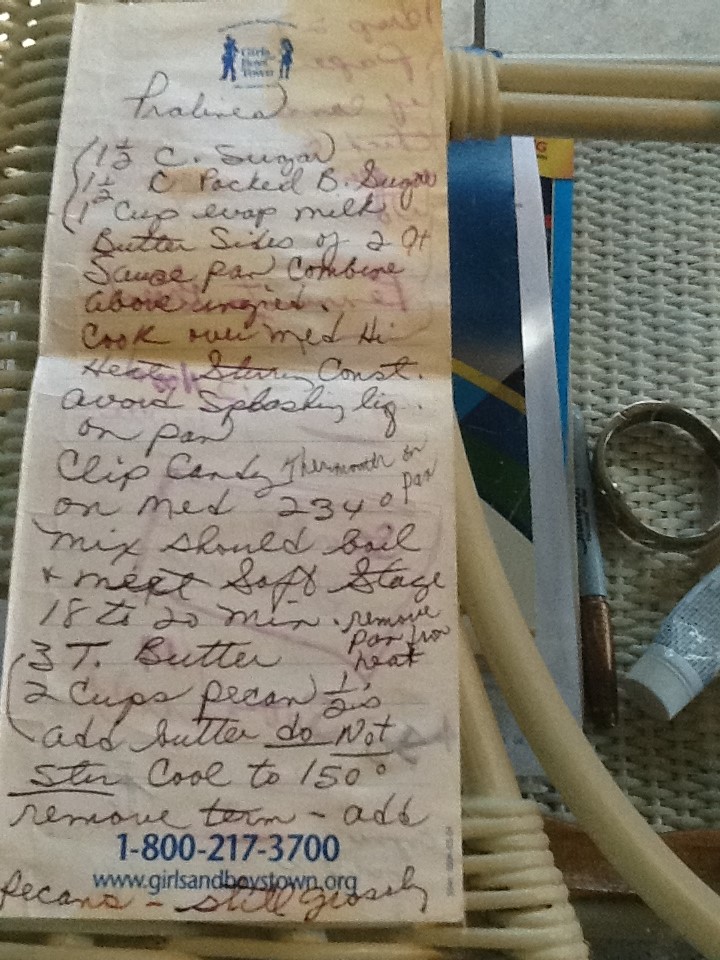 Girls
Boys
Town
Pralines
1 1/2 C. Sugar
1 1/2 C Packed B. Sugar
1 Cup evap milk
Butter Sides of 2 Qt
Sauce pan Combine
above ingred.
Cook over Med Hi
Heat Stirring Const.
avoid Splashing liq.
on pan
Clip Candy Thermometer on
pan
on Med 234°
Mix should boil
+ meet Soft Stage
18 to 20 Min. remove
pan from
heat
3 T. Butter
2 Cups pecan 1/2's
add butter do Not
Stir Cool to 150°
remove term - add
1-800-217-3700
www.girlsandboystown.org
Pecans - still glossy